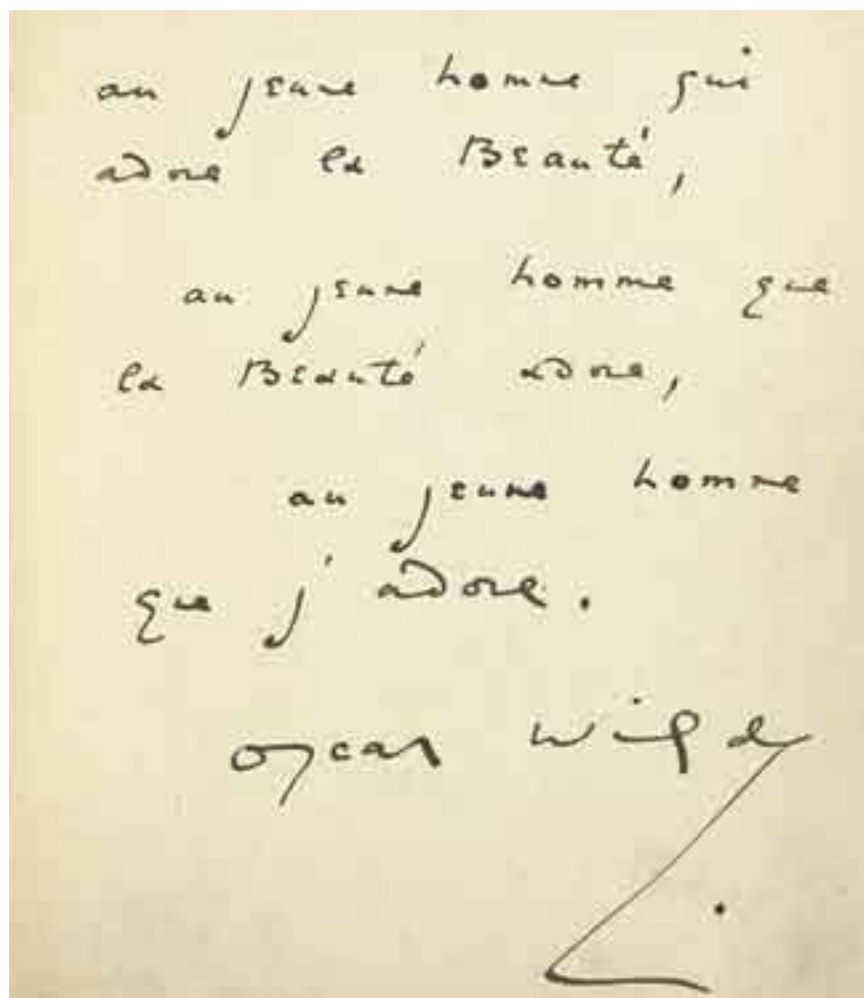 au jeune homme qui
adore la Beauté,
au jeune homme que
la Beauté adore,
au jeune homme
que j'adore.
Oscar Wilde